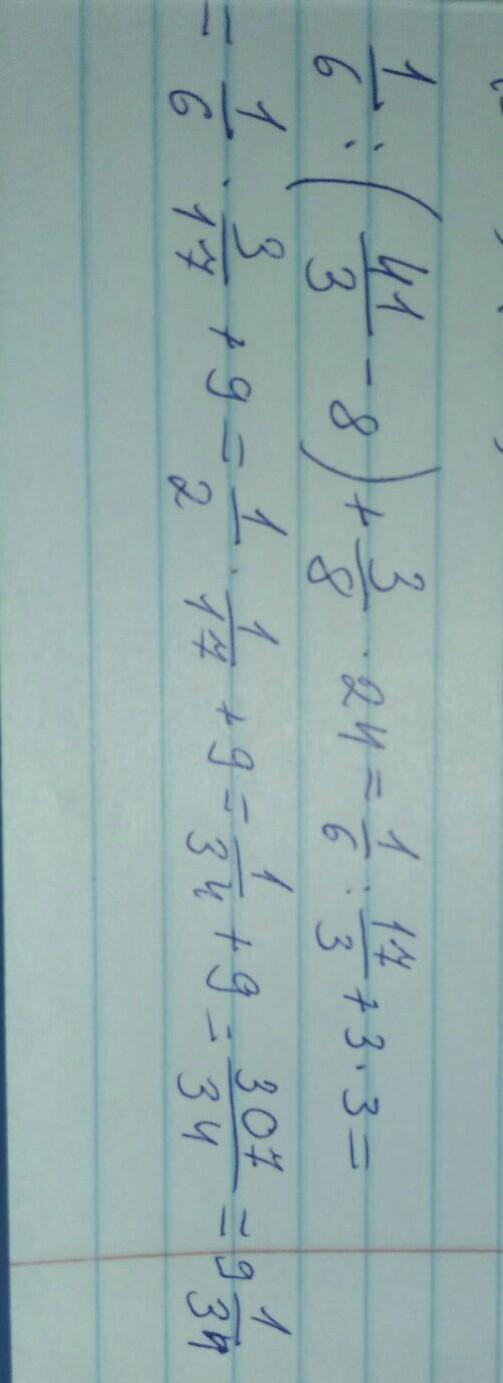 1/6 : (41/3 - 8) + 3/8 · 24 = 1/6 : 17/3 + 3 · 3 =
= 1/6 · 3/17 + 9 = 1/2 · 1/17 + 9 = 1/34 + 9 = 307/34 = 9 1/34